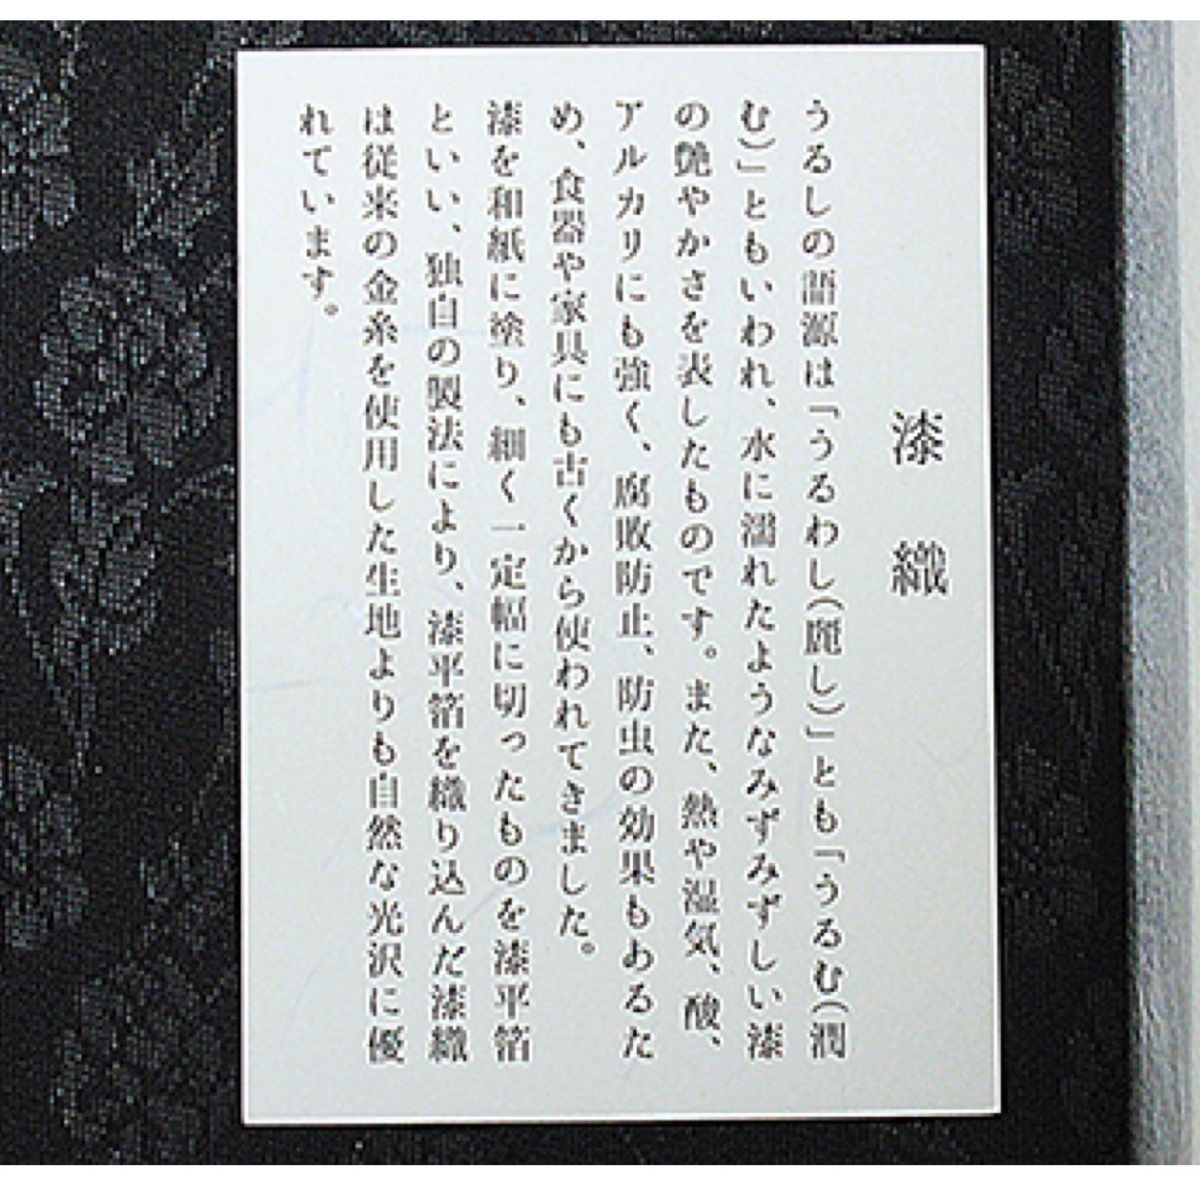 漆織
うるしの語源は「うるわし(麗し)」とも「うるむ(潤
む)」ともいわれ、水に濡れたようなみずみずしい漆
の艶やかさを表したものです。また、熱や湿気、酸、
アルカリにも強く、腐敗防止、防虫の効果もあるた
め、食器や家具にも古くから使われてきました。
漆を和紙に塗り、細く一定幅に切ったものを漆平箔
といい、独自の製法により、漆平箔を織り込んだ漆織
は従来の金糸を使用した生地よりも自然な光沢に優
れています。